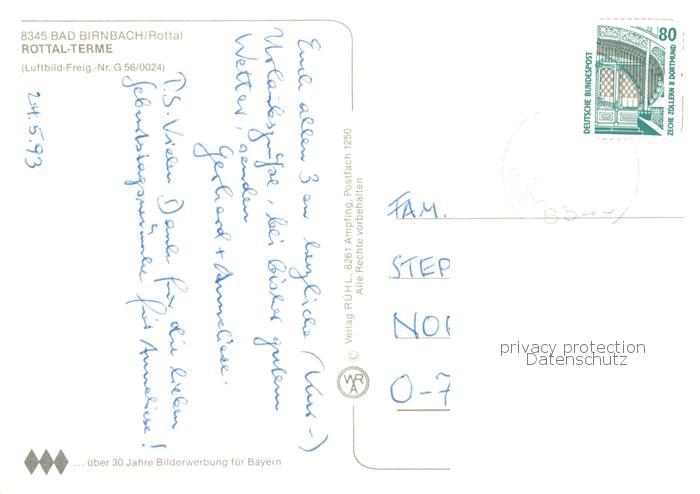 8345 BAD BIRNBACH/Rottal
ROTTAL-TERME
(Luftbild-Freig.-Nr. G 56/0024)
24.5.93
Euch allen 3en herzliche (Kur-)
Urlaubsgrüße, bei bisher gutem
Wetter, senden
Gerhard + Anneliese.
P.S. Vielen Dank für die lieben
Geburtstagswünsche für Anneliese!
© Verlag RÜHL, 8261 Ampfing, Postfach 1250
Alle Rechte vorbehalten
WRA
... über 30 Jahre Bilderwerbung für Bayern
80
DEUTSCHE BUNDESPOST
ZECHE ZOLLERN II DORTMUND
FAM.
STEP
NO
O-7
privacy protection
Datenschutz